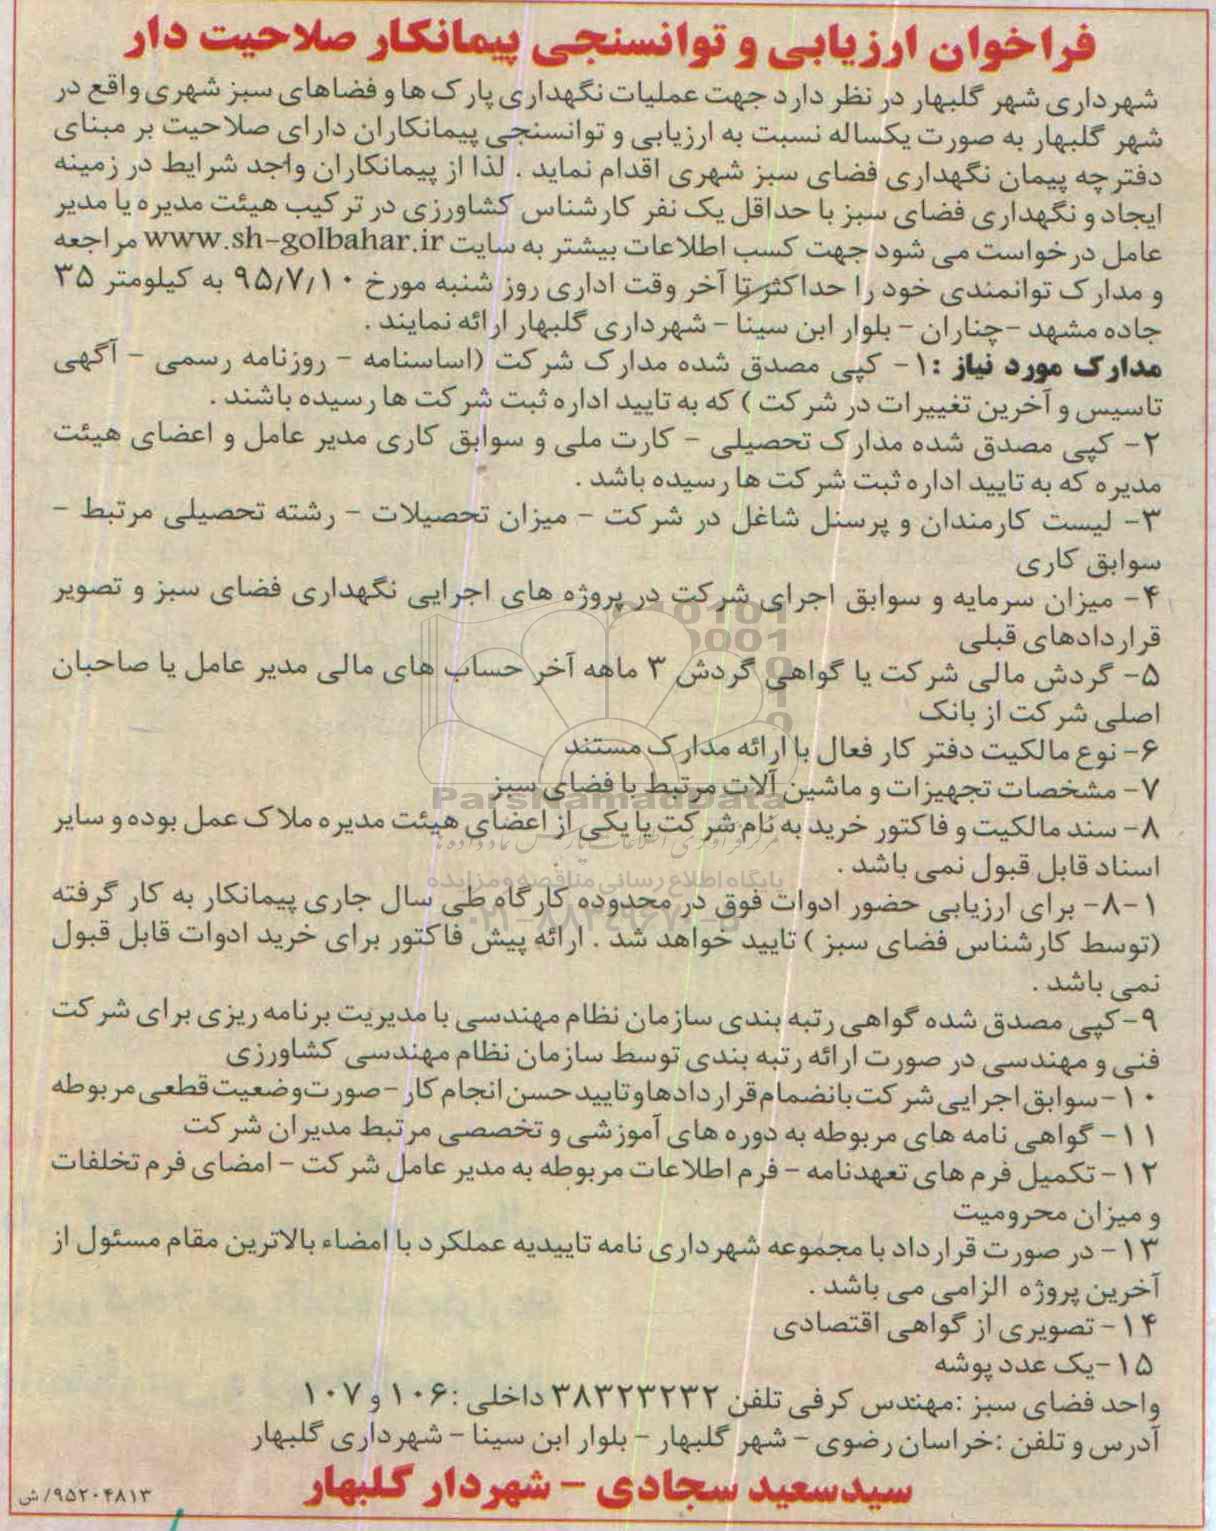 فراخوان ارزیابی و توانسنجی پیمانکار صلاحیت دار
شهرداری شهر گلبهار در نظر دارد جهت عملیات نگهداری پارک ها و فضاهای سبز شهری واقع در
شهر گلبهار به صورت یکساله نسبت به ارزیابی و توانسنجی پیمانکاران دارای صلاحیت بر مبنای
دفترچه پیمان نگهداری فضای سبز شهری اقدام نماید . لذا از پیمانکاران واجد شرایط در زمینه
ایجاد و نگهداری فضای سبز با حداقل یک نفر کارشناس کشاورزی در ترکیب هیئت مدیره یا مدیر
عامل درخواست می شود جهت کسب اطلاعات بیشتر به سایت www.sh-golbahar.ir مراجعه
و مدارک توانمندی خود را حداکثر تا آخر وقت اداری روز شنبه مورخ ۹۵/۷/۱۰ به کیلومتر ۳۵
جاده مشهد -چناران - بلوار ابن سینا - شهرداری گلبهار ارائه نمایند .
مدارک مورد نیاز :۱- کپی مصدق شده مدارک شرکت (اساسنامه - روزنامه رسمی - آگهی
تاسیس و آخرین تغییرات در شرکت ) که به تایید اداره ثبت شرکت ها رسیده باشند .
۲- کپی مصدق شده مدارک تحصیلی - کارت ملی و سوابق کاری مدیر عامل و اعضای هیئت
مدیره که به تایید اداره ثبت شرکت ها رسیده باشد .
۳- لیست کارمندان و پرسنل شاغل در شرکت - میزان تحصیلات - رشته تحصیلی مرتبط -
سوابق کاری
۴- میزان سرمایه و سوابق اجرای شرکت در پروژه های اجرایی نگهداری فضای سبز و تصویر
قراردادهای قبلی
۵- گردش مالی شرکت یا گواهی گردش ۳ ماهه آخر حساب های مالی مدیر عامل یا صاحبان
اصلی شرکت از بانک
۶- نوع مالکیت دفتر کار فعال با ارائه مدارک مستند
۷- مشخصات تجهیزات و ماشین آلات مرتبط با فضای سبز
ParsNamadData
۸- سند مالکیت و فاکتور خرید به نام شرکت یا یکی از اعضای هیئت مدیره ملاک عمل بوده و سایر
اسناد قابل قبول نمی باشد .
پایگاه اطلاع رسانی مناقصه و مزایده
۸-۱- برای ارزیابی حضور ادوات فوق در محدوده کارگاه طی سال جاری پیمانکار به کار گرفته
(توسط کارشناس فضای سبز ) تایید خواهد شد . ارائه پیش فاکتور برای خرید ادوات قابل قبول
نمی باشد .
۹-کپی مصدق شده گواهی رتبه بندی سازمان نظام مهندسی با مدیریت برنامه ریزی برای شرکت
فنی و مهندسی در صورت ارائه رتبه بندی توسط سازمان نظام مهندسی کشاورزی
۱۰-سوابق اجرایی شرکت بانضمام قراردادها و تایید حسن انجام کار -صورت وضعیت قطعی مربوطه
۱۱- گواهی نامه های مربوطه به دوره های آموزشی و تخصصی مرتبط مدیران شرکت
۱۲- تکمیل فرم های تعهدنامه - فرم اطلاعات مربوطه به مدیر عامل شرکت - امضای فرم تخلفات
و میزان محرومیت
۱۳- در صورت قرارداد با مجموعه شهرداری نامه تاییدیه عملکرد با امضاء بالاترین مقام مسئول از
آخرین پروژه الزامی می باشد .
۱۴- تصویری از گواهی اقتصادی
۱۵-یک عدد پوشه
واحد فضای سبز :مهندس کرفی تلفن ۳۸۳۲۳۲۳۲ داخلی :۱۰۶ و ۱۰۷
آدرس و تلفن :خراسان رضوی - شهر گلبهار - بلوار ابن سینا - شهرداری گلبهار
سیدسعید سجادی - شهردار گلبهار
۹۵۲۰۴۸۱۳/ش